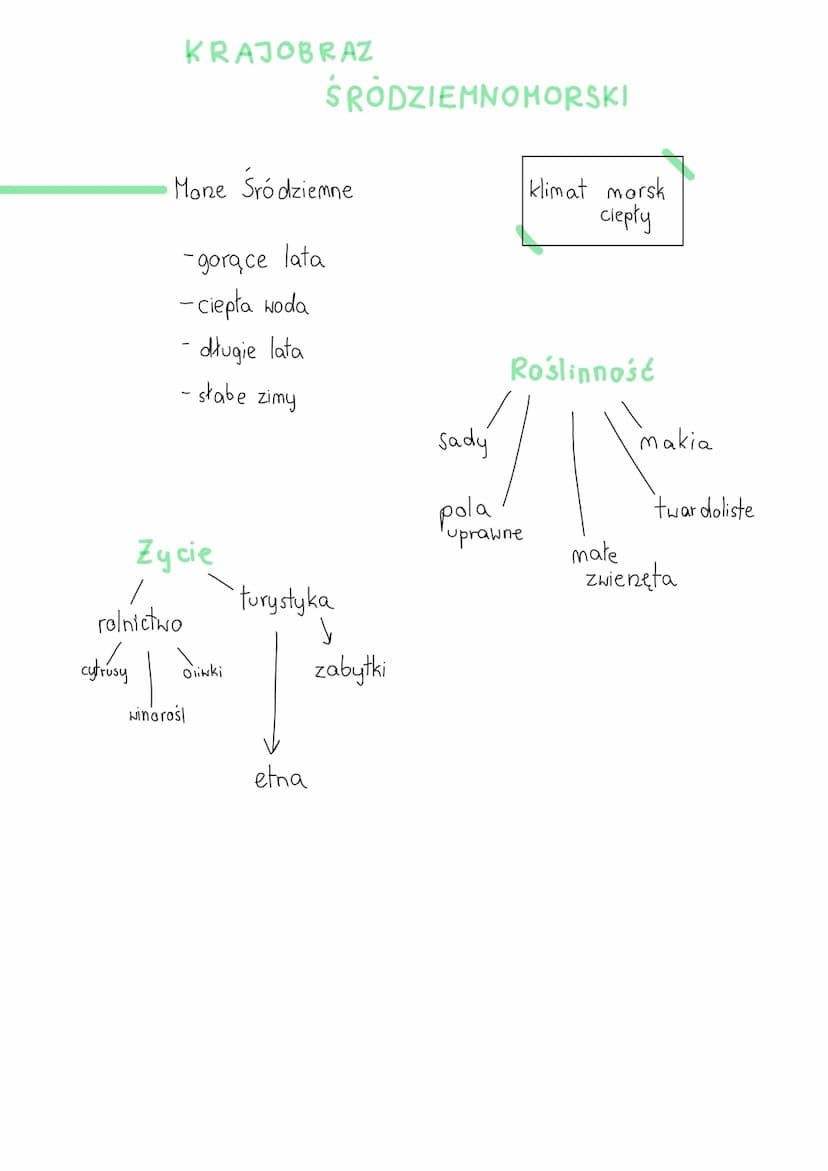 KRAJOBRAZ
ŚRÓDZIEMNOMORSKI
Morze Śródziemne
klimat morsk
ciepły
-gorące lata
-ciepła woda
- długie lata
- słabe zimy
Roślinność
sady
makia
pola
uprawne
twardoliste
małe
zwierzęta
Życie
rolnictwo
turystyka
cytrusy
oliwki
winorośl
zabytki
etna